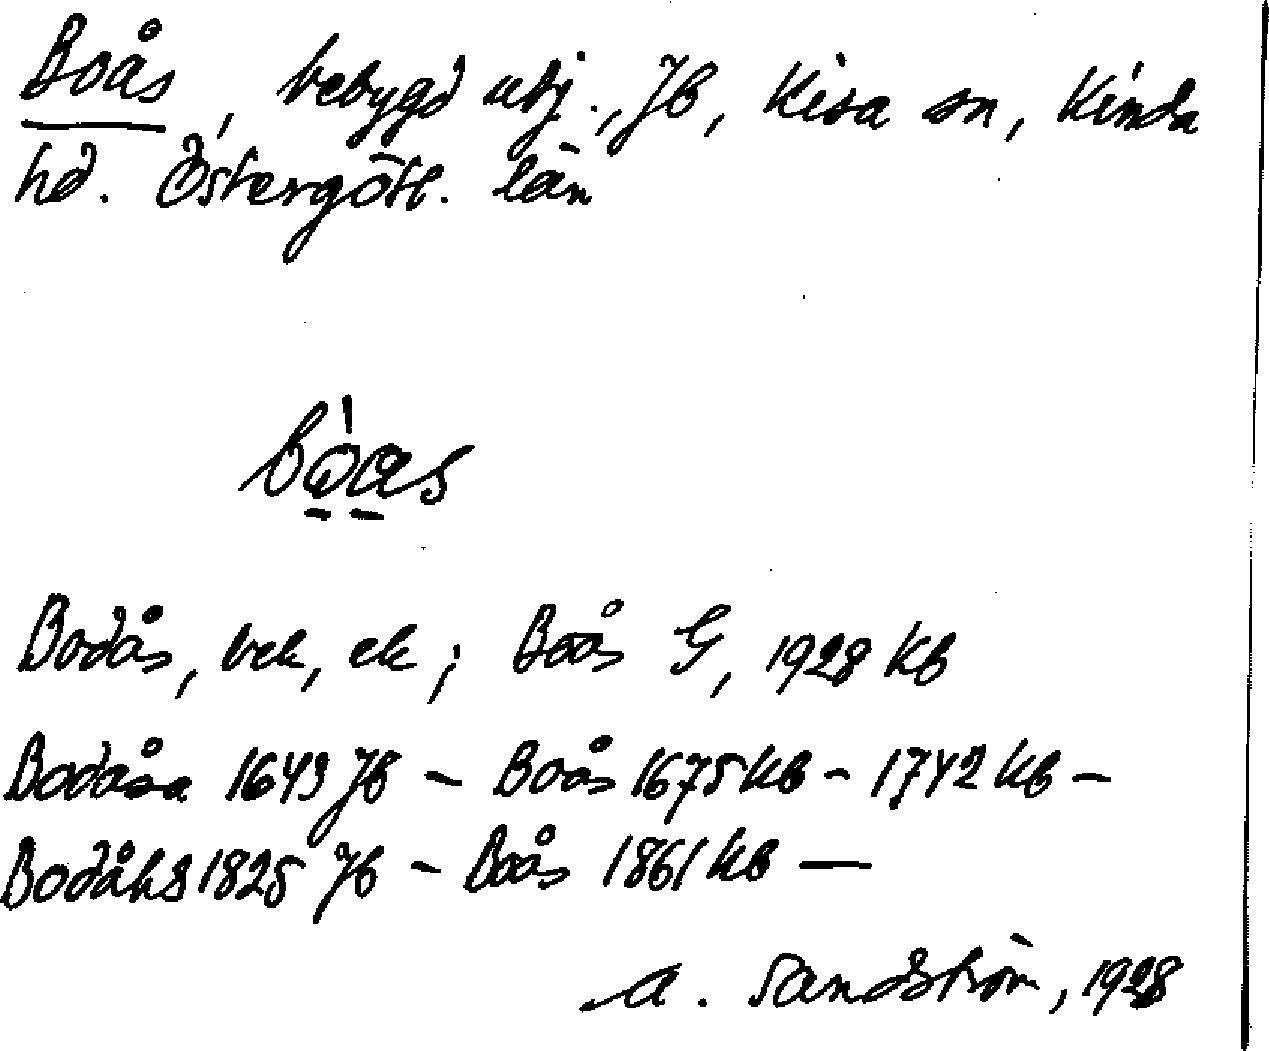 Boås, bebygd utj., Jb, Kisa sn, Kinda
hd. Östergötl. län
bo̱'a̱s
Bodås, bek, ek; Boås G, 1928 Kb
Bodåsa 1649 Jb – Boås 1675 Kb – 1742 Kb –
Bodåhs 1825 Jb – Boås 1861 Kb —
A. Sandström, 1928